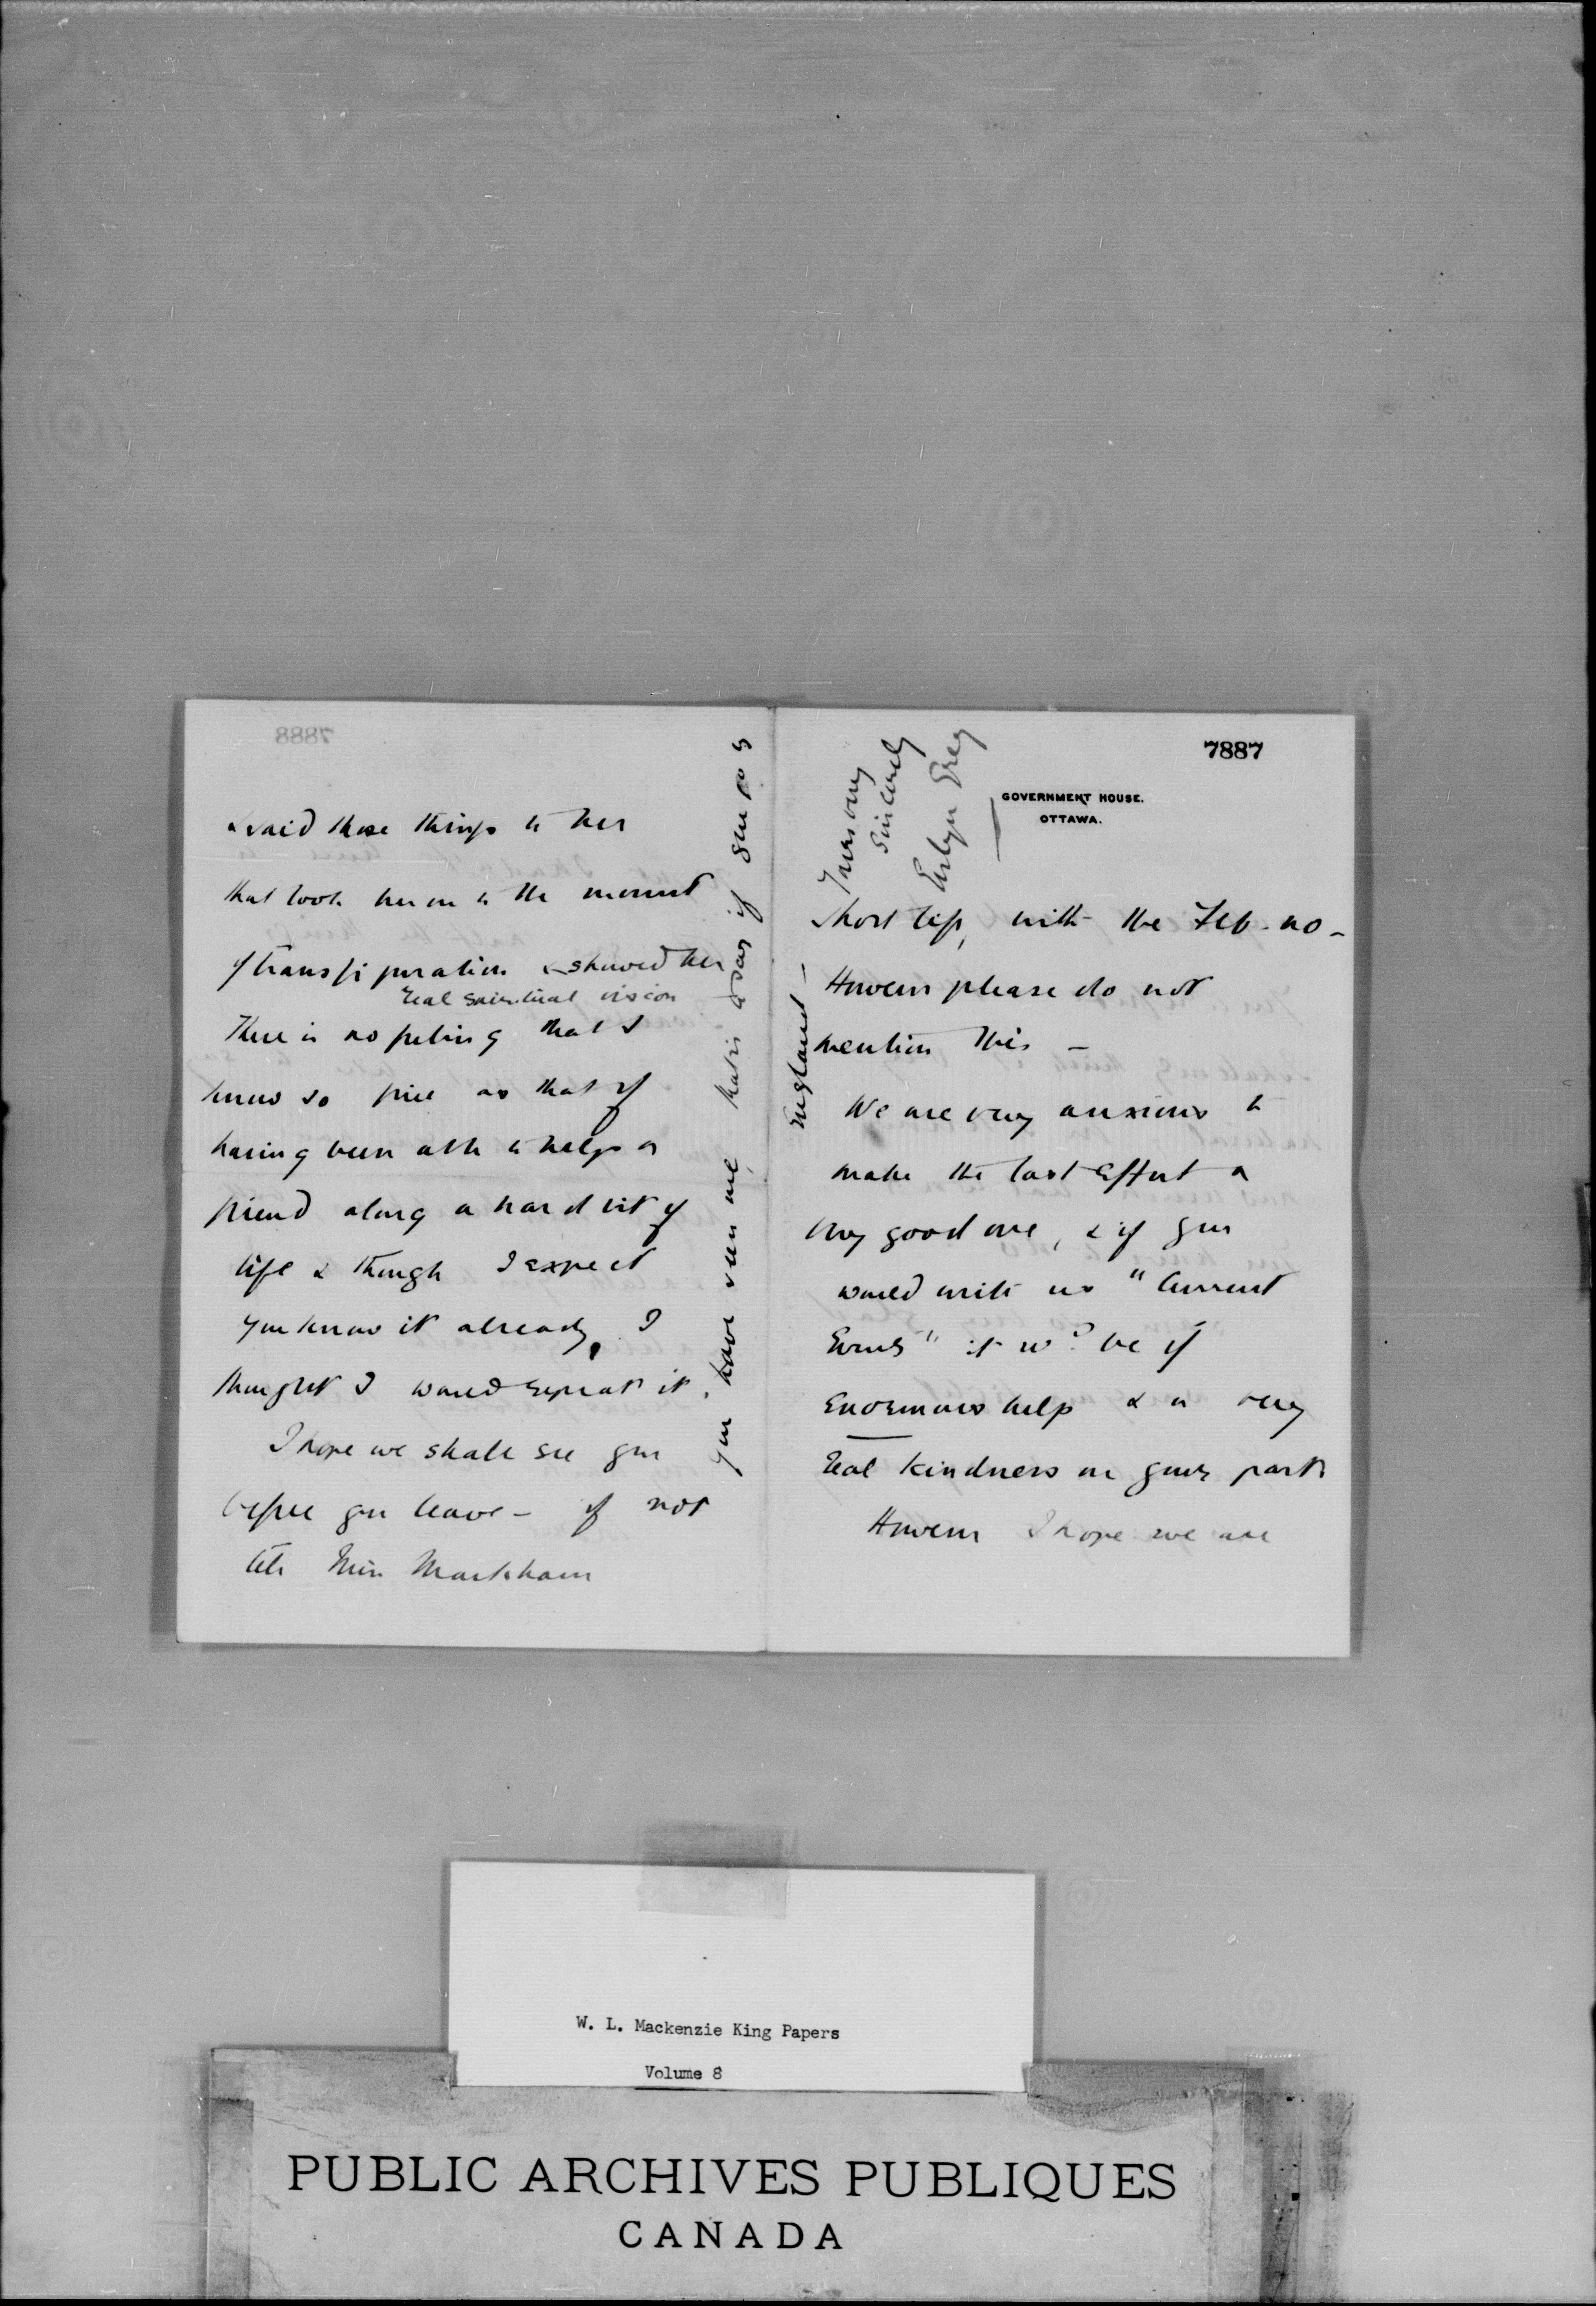 7888
& said those things to her
that took her on to the mount
of transfiguration & showed her
real spiritual vision
There is no feeling that I
know so fine as that of
having been able to help a
friend along a hard bit of
life & though I expect
you know it already, I
thought I would repeat it.
I hope we shall see you
before you leave - if not
tell Miss Markham
you have seen me, that is to say if you go to
England -
7887
GOVERNMENT HOUSE.
OTTAWA.
short trip, with the Feb. no -
However please do not
mention this -
We are very anxious to
make the last effort a
very good one, & if you
would write us "Current
Events" it wd. be of
enormous help & a very
real kindness on your part
However I hope we are
Yours very
Sincerely
Evelyn Grey
W. L. Mackenzie King Papers
Volume 8
PUBLIC ARCHIVES PUBLIQUES
CANADA